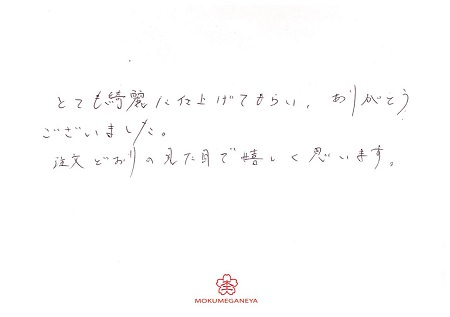 とても綺麗に仕上げてもらい、ありがとう
ございました。
注文どおりの見た目で嬉しく思います。
MOKUMEGANEYA